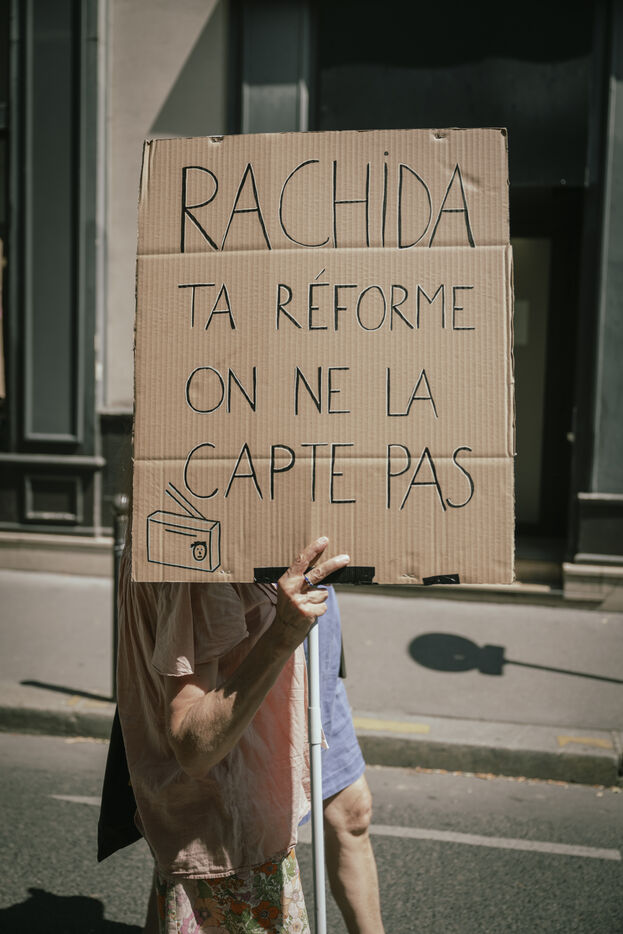 RACHIDA
TA RÉFORME
ON NE LA
CAPTE PAS